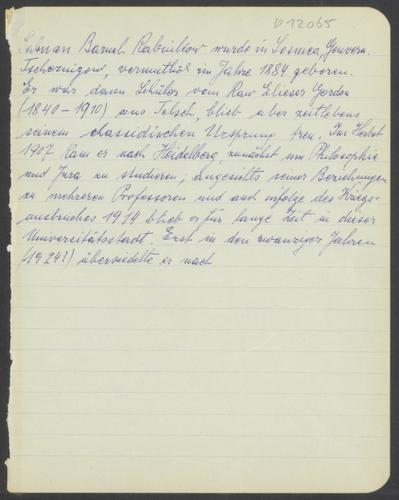 D 12065
Salman Baruch Rabinkow wurde in Sosnica, Gouvern.
Tschernigow, vermutlich im Jahre 1884 geboren.
Er war dann Schüler vom Raw Elieser Gordon
(1840-1910) aus Telsch, blieb aber zeitlebens
seinem chassidischen Ursprung treu. Im Herbst
1907 kam er nach Heidelberg, zunächst um Philosophie
und Jura zu studieren; angesichts seiner Beziehungen
zu mehreren Professoren und auch infolge des Kriegs-
ausbruches 1914 blieb er für lange Zeit in dieser
Universitätsstadt. Erst in den zwanziger Jahren
(1924?) übersiedelte er nach